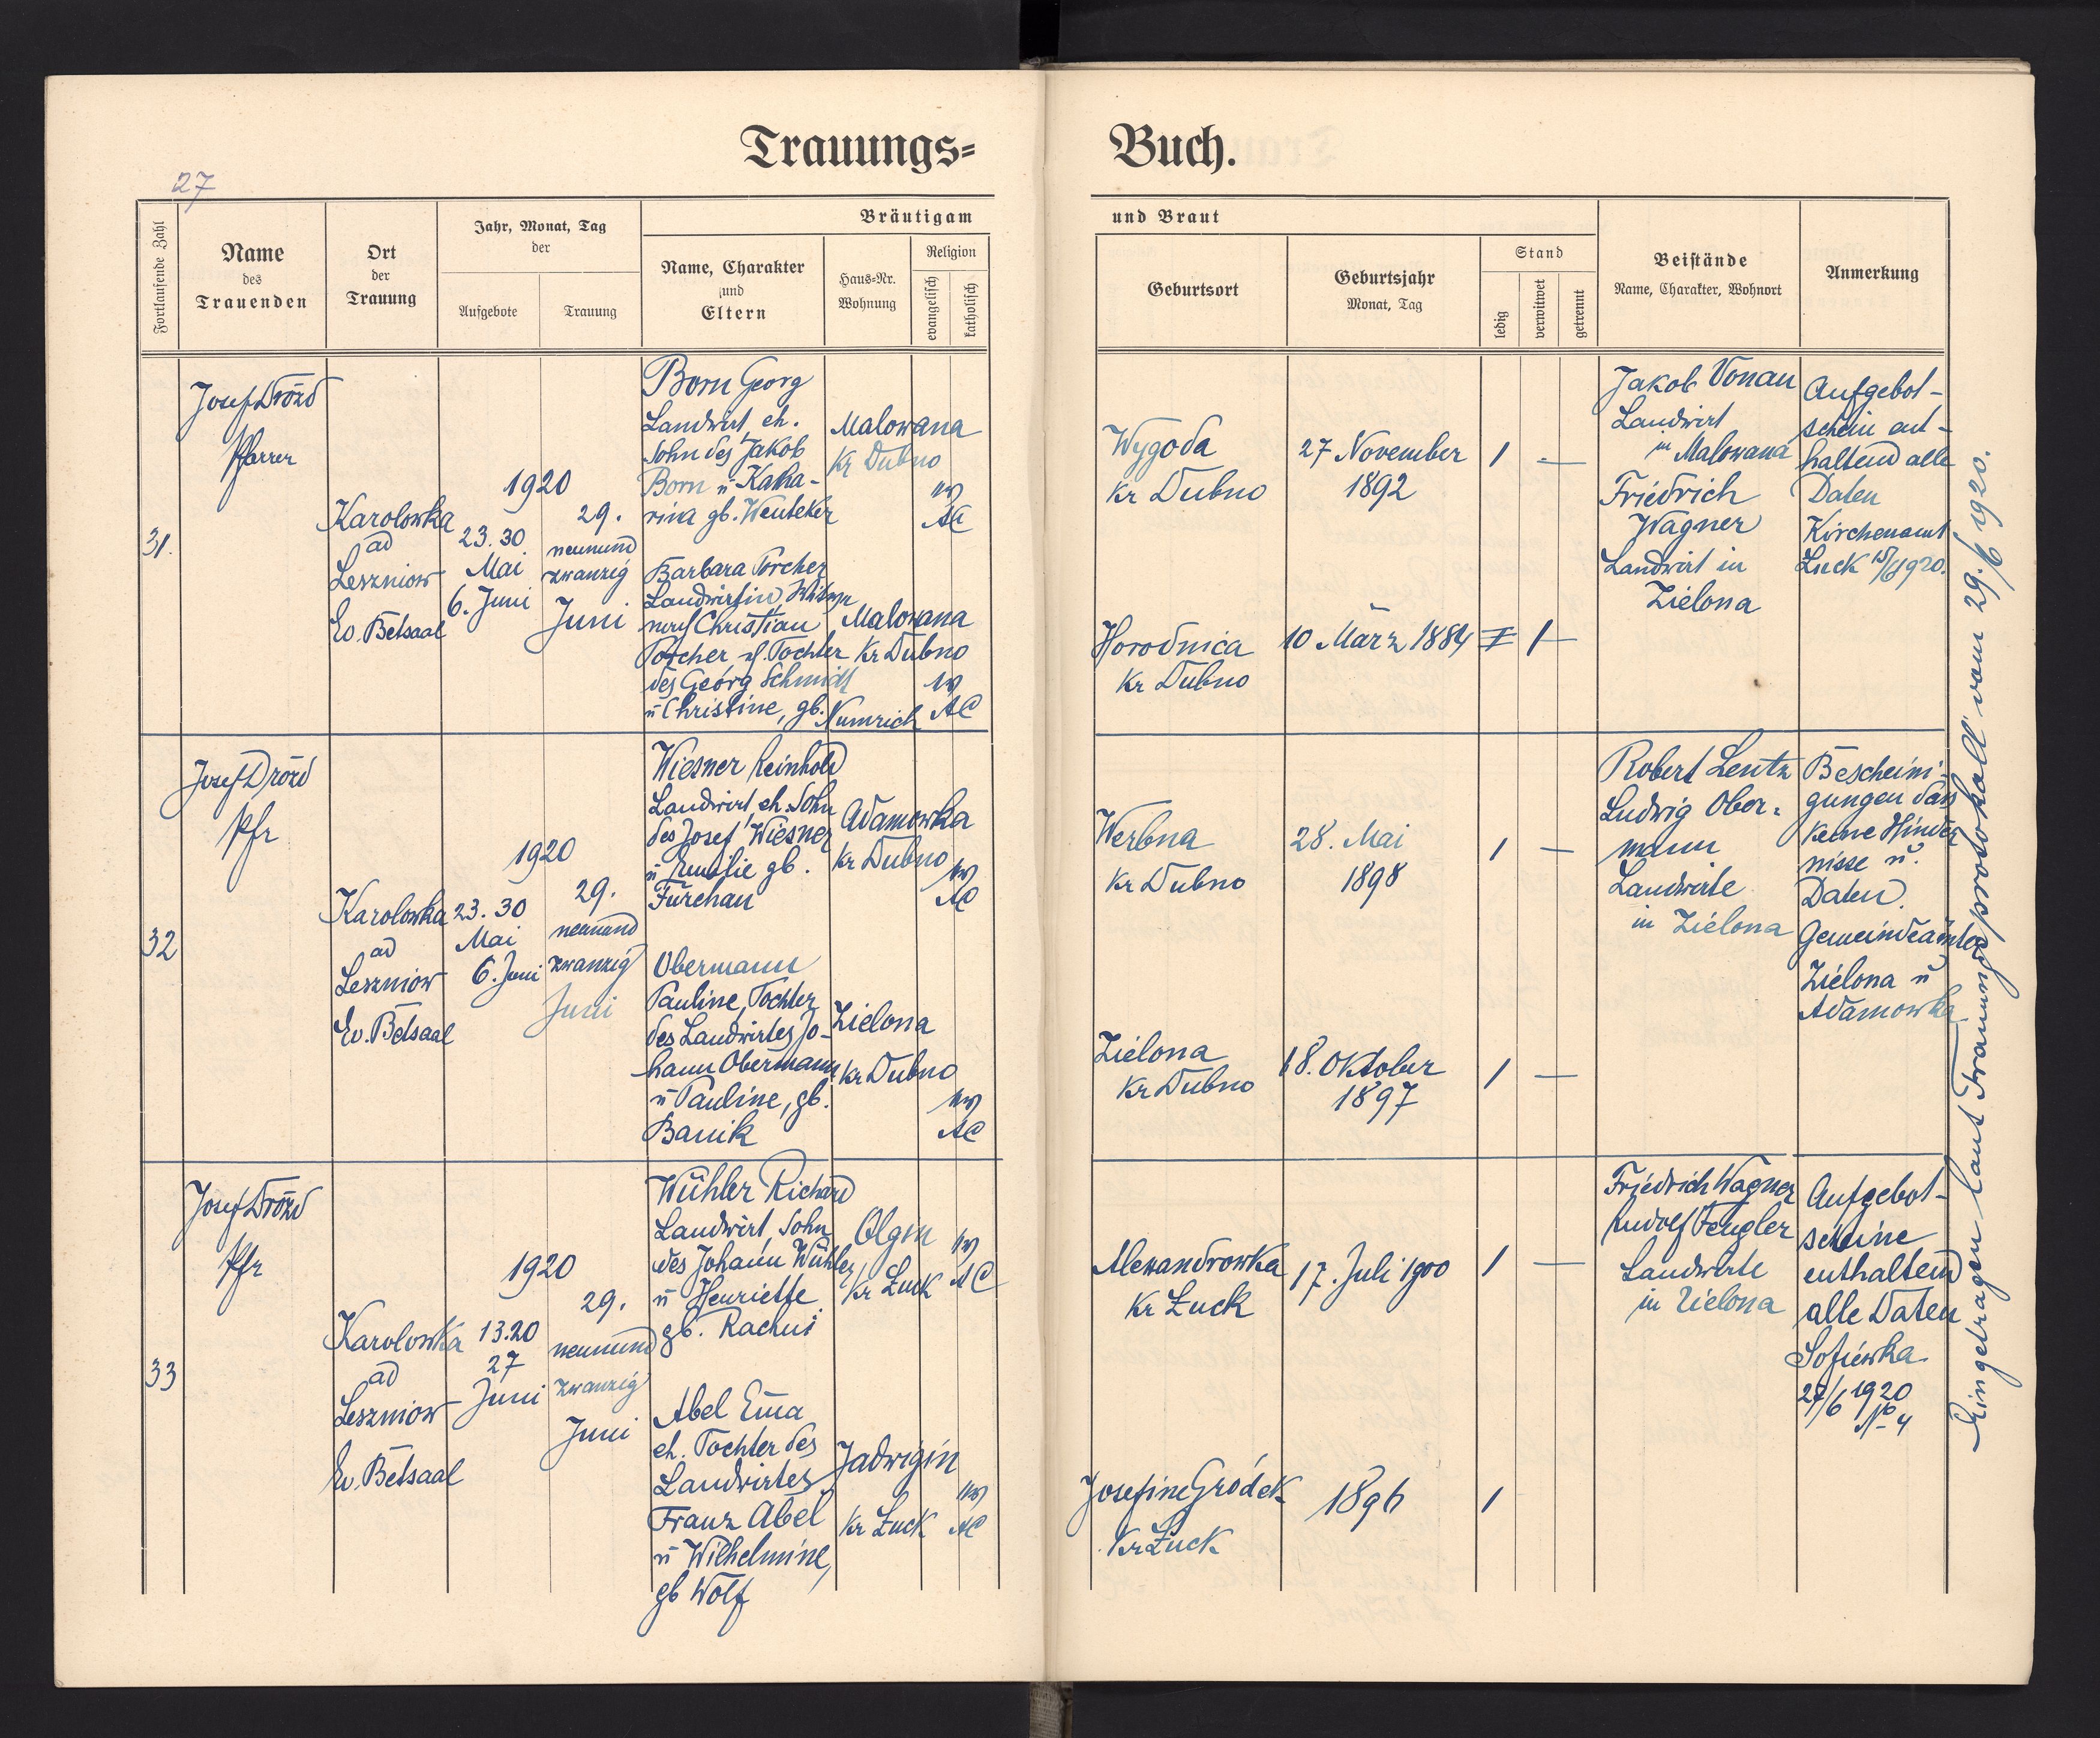 Trauungs=
Buch.
27
Fortlaufende Zahl
Name
des
Trauenden
Ort
der
Trauung
Jahr, Monat, Tag
der
Aufgebote
Trauung
Bräutigam
Name, Charakter
und
Eltern
Haus=Nr.
Wohnung
Religion
evangelisch
katholisch
und Braut
Geburtsort
Geburtsjahr
Monat, Tag
Stand
ledig
verwitwet
getrennt
Beistände
Name, Charakter, Wohnort
Anmerkung
31.
Josef Drózd
Pfarrer
Karolowka
ad
Leszniow
Ev. Betsaal
1920
23. 30
Mai
6. Juni
29.
neunund
zwanzig
Juni
Born Georg
Landwirt, eh.
Sohn des Jakob
Born u Katha-
rina gb.
Malowana
Kr Dubno
AC
Barbara Porcher
Landwirtin,
nach Christian
Porcher Tochter
des Georg Schmidt
u Christine, gb. Numrich
Malowana
Kr Dubno
AC
Wygoda
Kr Dubno
27 November
1892
1 —
Horodnica
Kr Dubno
10 März 1884
1 —
Jakob Vonau
Landwirt
in Malowana
Friedrich
Wagner
Landwirt in
Zielona
Aufgebot-
schein ent-
haltend alle
Daten
Kirchenamt
Luck 15/6 1920.
32
Josef Drózd
Pfr
Karolowka
ad
Leszniow
Ev. Betsaal
1920
23. 30
Mai
6. Juni
29.
neunund
zwanzig
Juni
Wiesner Reinhold
Landwirt, eh. Sohn
des Josef Wiesner
u Emilie gb.
Fürchau
Adamowka
Kr Dubno
AC
Obermann
Pauline, Tochter
des Landwirtes Jo-
hann Obermann
u Pauline, gb.
Banik
Zielona
Kr Dubno
AC
Werbna
Kr Dubno
28. Mai
1898
1 —
Zielona
Kr Dubno
18. Oktober
1897
1 —
Robert Lentz
Ludwig Ober-
mann
Landwirte
in Zielona
Bescheini-
gungen dass
keine Hinder
nisse u.
Daten.
Gemeindeämter
Zielona u
Adamowka
33
Josef Drózd
Pfr
Karolowka
ad
Leszniow
Ev. Betsaal
1920
13.20
27
Juni
29.
neunund
zwanzig
Juni
Wühler Richard
Landwirt, Sohn
des Johann Wühler
u Henriette
gb. Rachui
Olgin
Kr Łuck
AC
Abel Ema
eh. Tochter des
Landwirtes
Franz Abel
u Wilhelmine,
gb Wolf
Jadwigin
Kr Łuck
AC
Alexandrowka
Kr Łuck
17. Juli 1900
1 —
Josefine Gródek
Kr Łuck
1896
1
Friedrich Wagner
Rudolf Fengler
Landwirte
in Zielona
Aufgebot-
scheine
enthaltend
alle Daten
Sofiewka
27/6 1920
No 4
Eingetragen laut Trauungsprotokoll vom 29./6 1920.